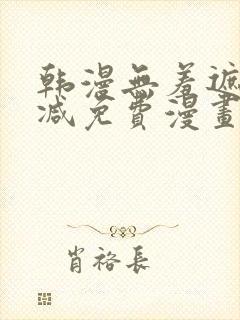 韩漫无羞遮
减免費漫畫
肖裕長